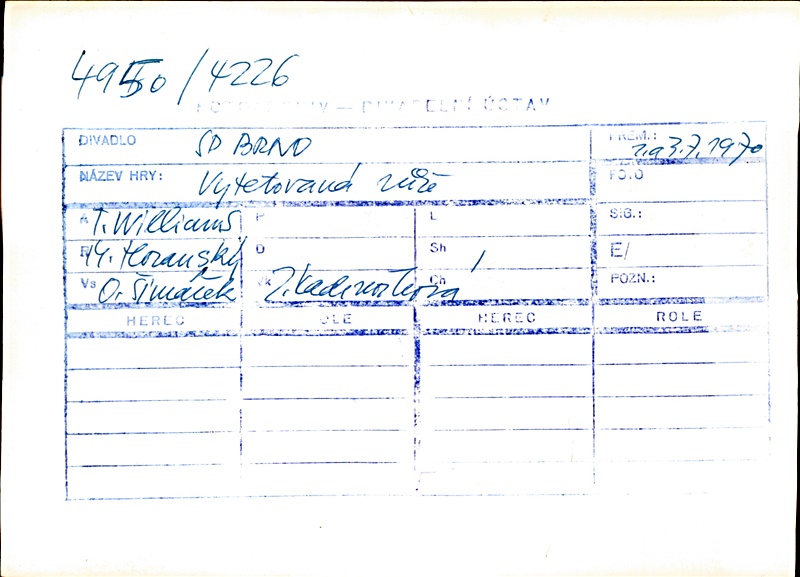 4950 / 4226
— DIVADELNÍ ÚSTAV
DIVADLO SD BRNO PREM.: 1. a 3. 7. 1970
NÁZEV HRY: Vytetovaná růže FOTO
A T. Williams P L SIG.:
R M. Horanský D Sh E/
Vs O. Šimáček Vk Ch POZN.:
HEREC ROLE HEREC ROLE